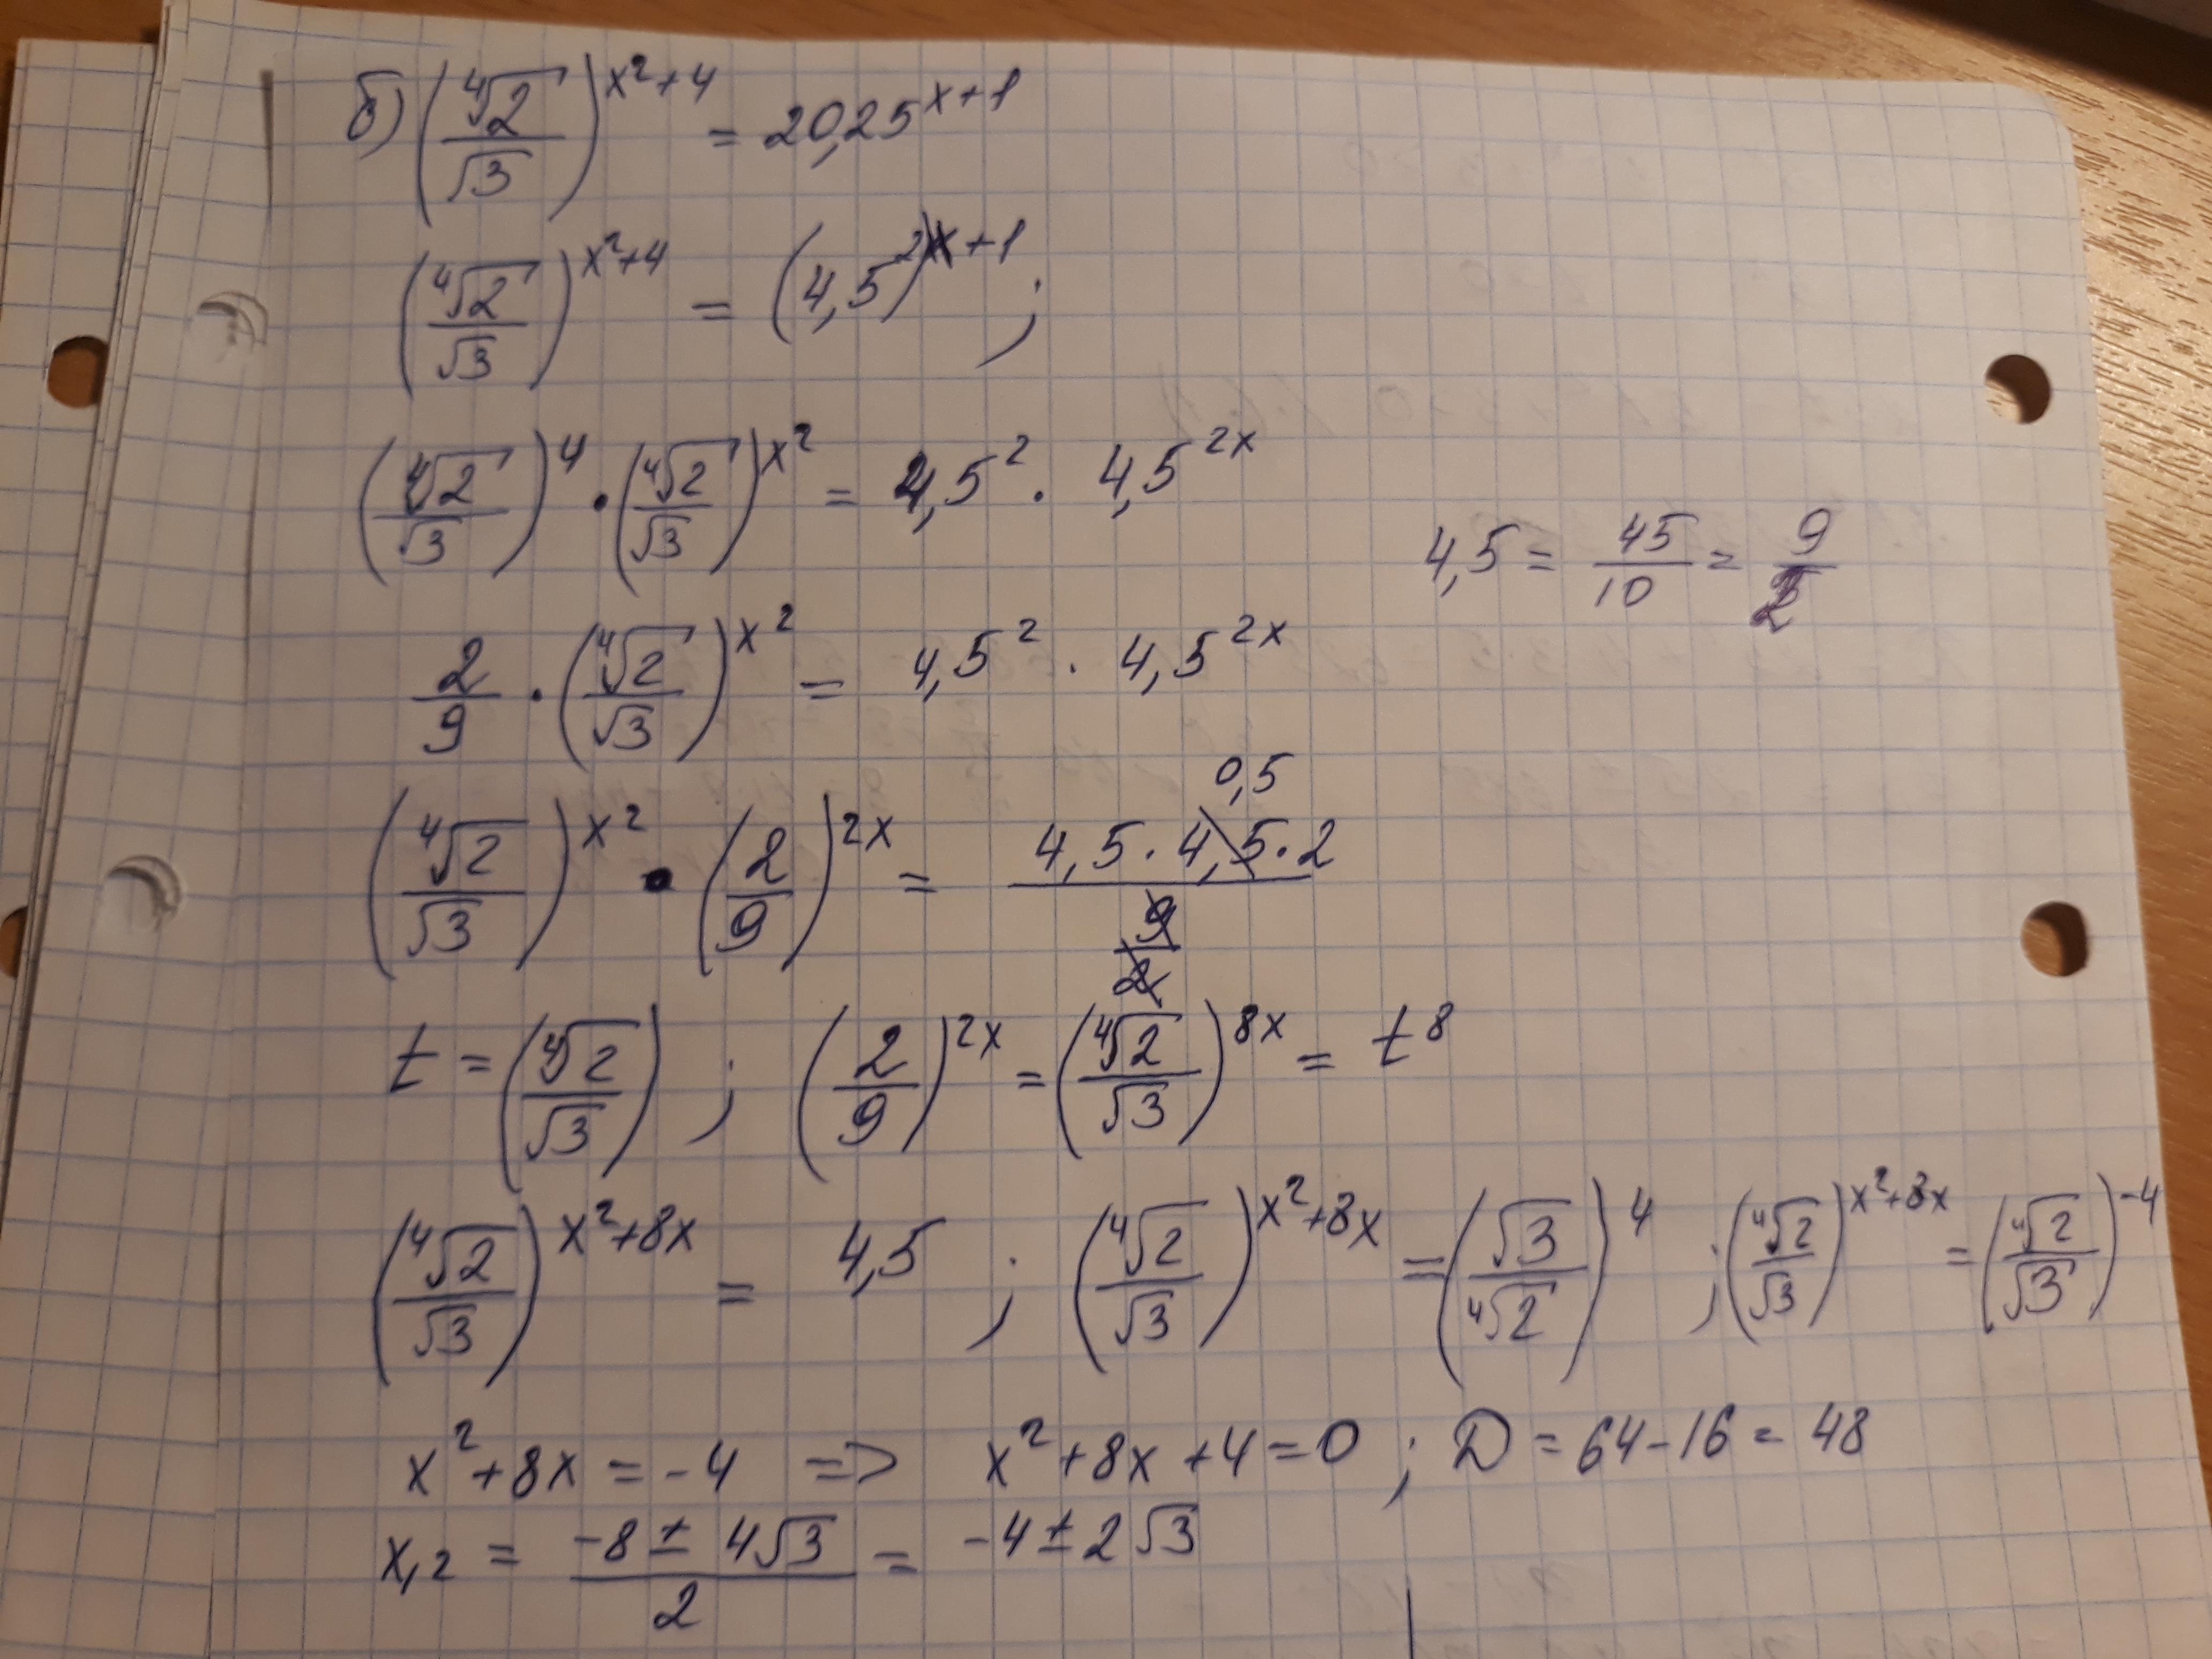 б) (⁴√2/√3)^(x²+4) = 20,25^(x+1)
(⁴√2/√3)^(x²+4) = (4,5^2)^(x+1) ;
(⁴√2/√3)^4 · (⁴√2/√3)^(x²) = 4,5² · 4,5^(2x)
4,5 = 45/10 = 9/2
2/9 · (⁴√2/√3)^(x²) = 4,5² · 4,5^(2x)
0,5
(⁴√2/√3)^(x²) · (2/9)^(2x) = (4,5 · 4,5 · 2)/(9/2)
t = (⁴√2/√3) ; (2/9)^(2x) = (⁴√2/√3)^(8x) = t⁸
(⁴√2/√3)^(x²+8x) = 4,5 ; (⁴√2/√3)^(x²+8x) = (√3/⁴√2)^4 ; (⁴√2/√3)^(x²+8x) = (⁴√2/√3)^(-4)
x² + 8x = -4 => x² + 8x + 4 = 0 ; D = 64 - 16 = 48
x,₂ = (-8 ± 4√3)/2 = -4 ± 2√3